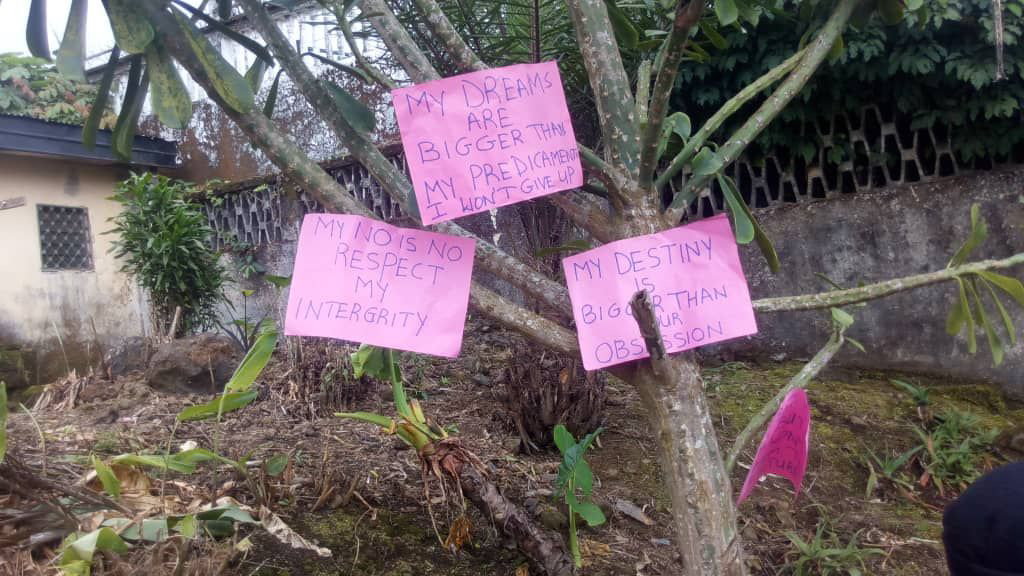 MY DREAMS
ARE
BIGGER THAN
MY PREDICAMENT
I WON'T GIVE UP
MY NO IS NO
RESPECT
MY
INTERGRITY
MY DESTINY
IS
THAN
OBSESSION